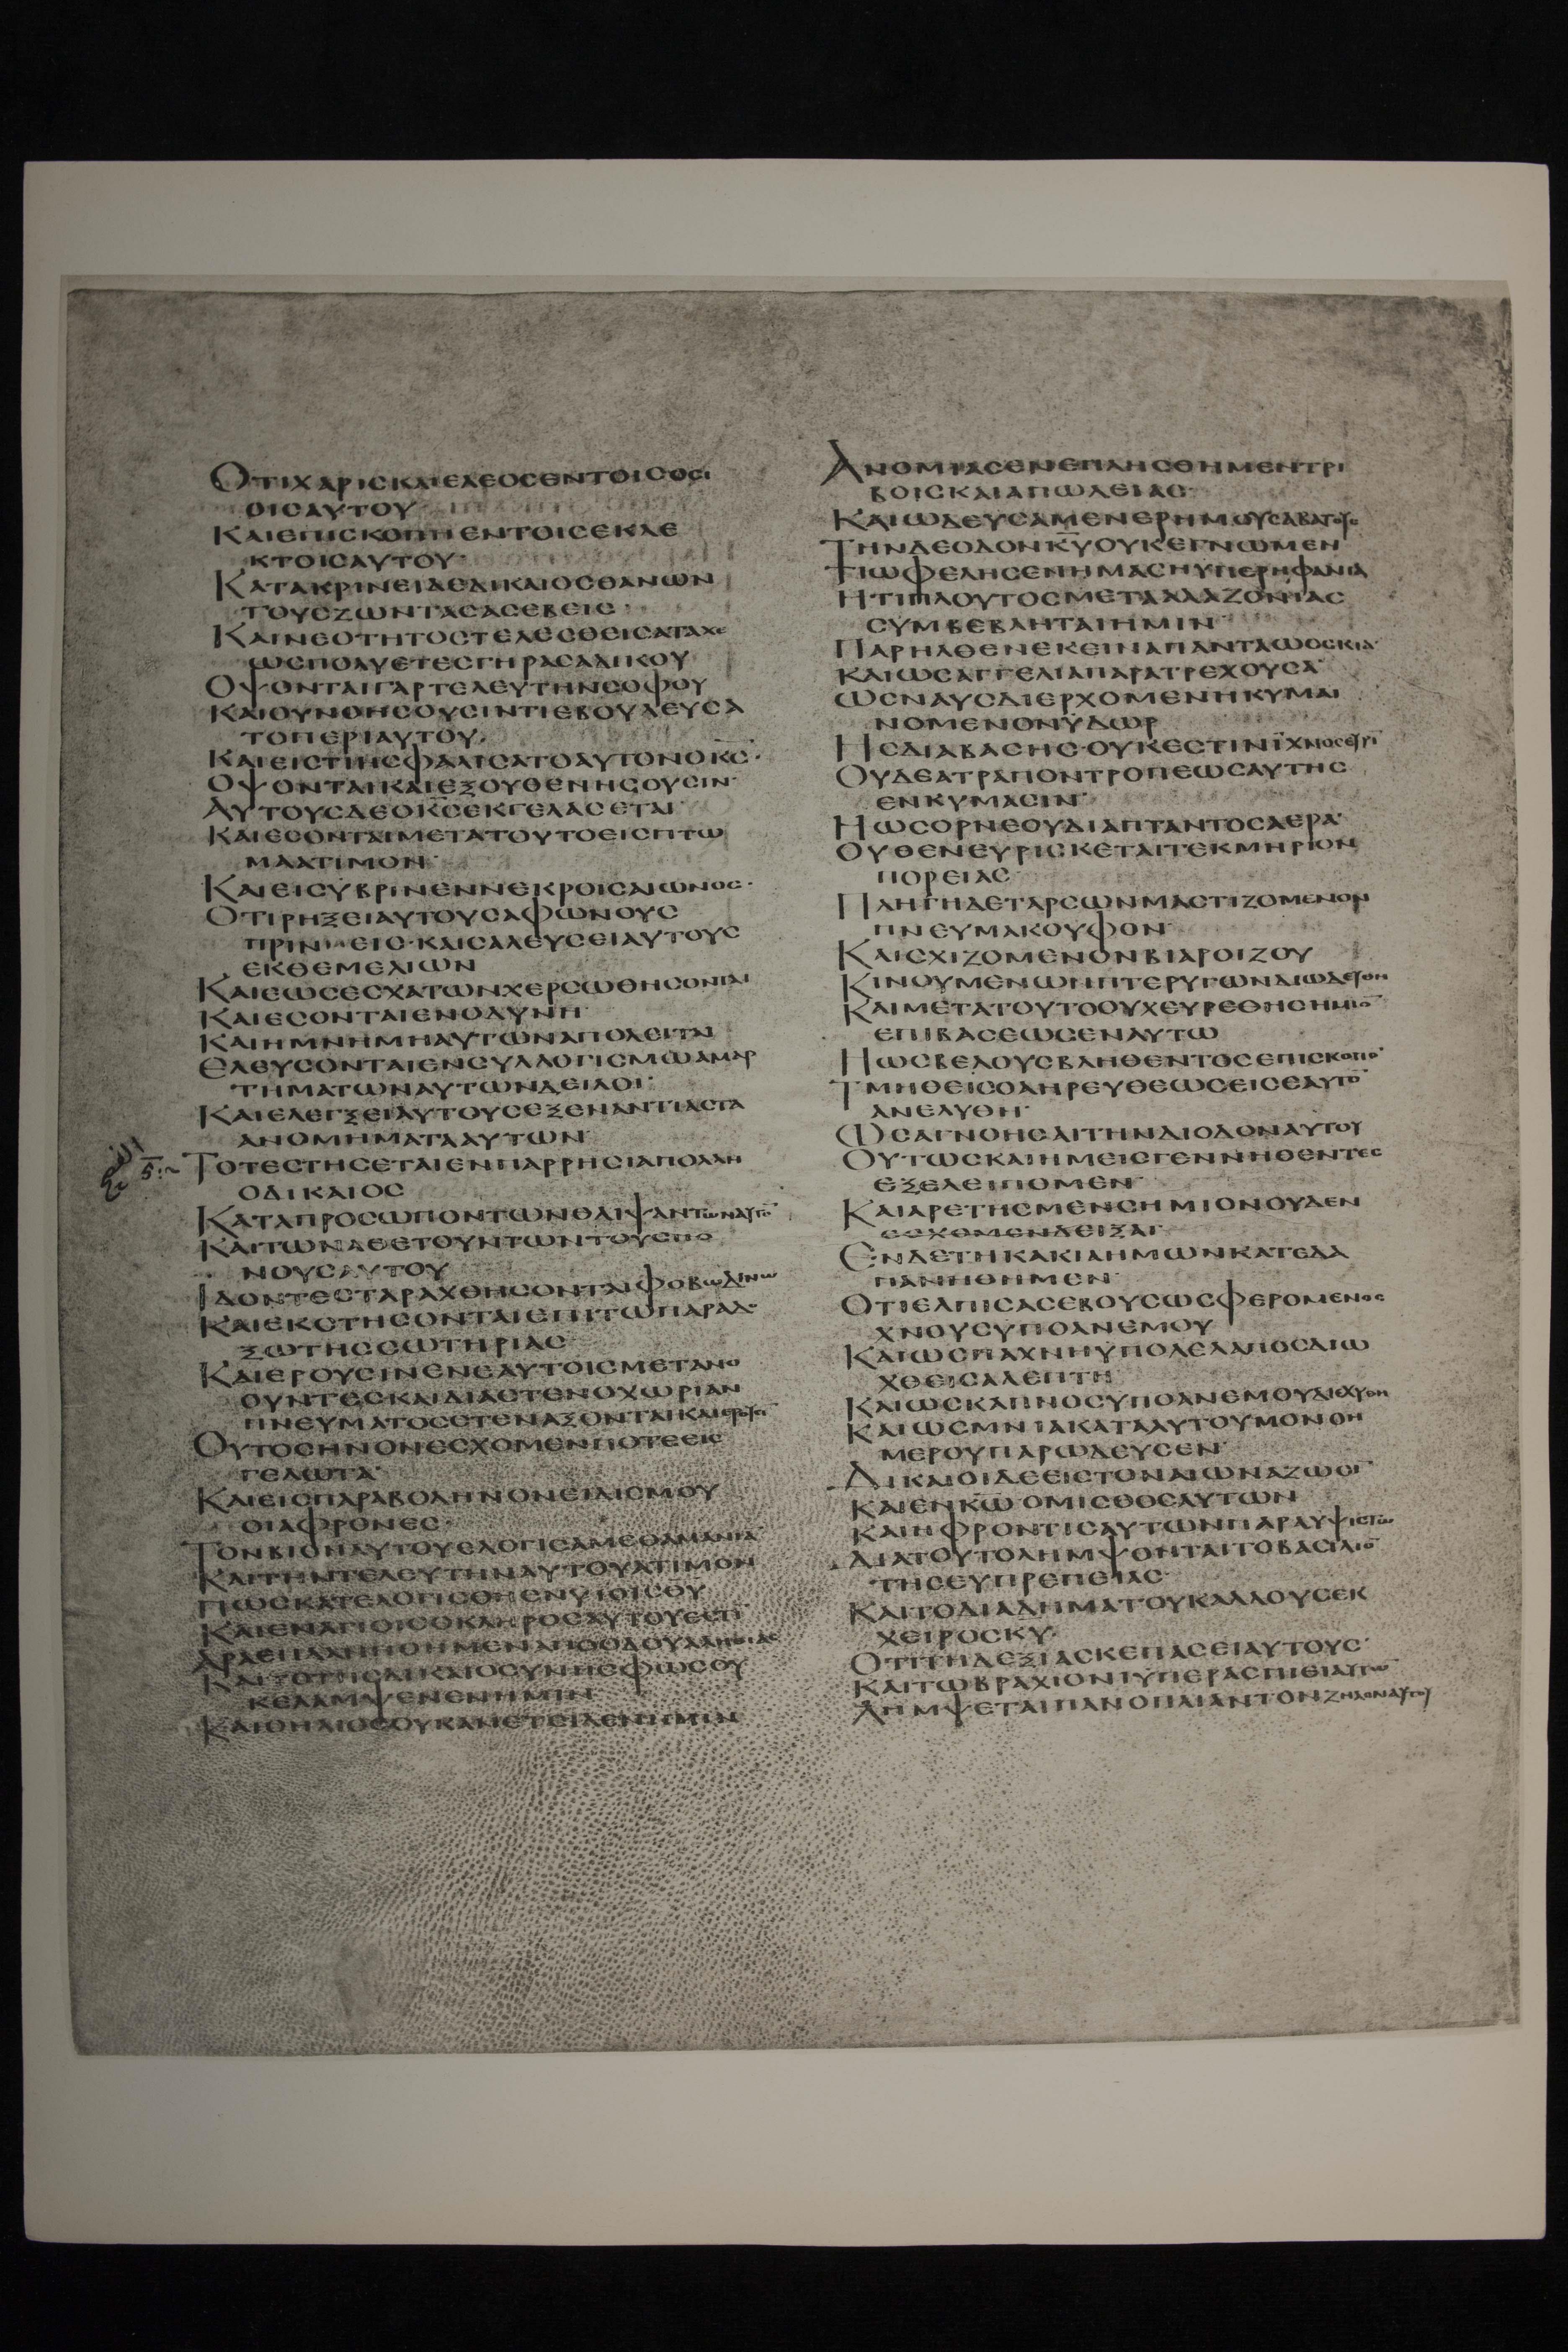 ΟΤΙΧΑΡΙCΚΑΙΕΛΕΟCΕΝΤΟΙCΟCΙ
ΟΙCΑΥΤΟΥ
ΚΑΙΕΠΙCΚΟΠΗΕΝΤΟΙCΕΚΛΕ
ΚΤΟΙCΑΥΤΟΥ·
ΚΑΤΑΚΡΙΝΕΙΔΕΔΙΚΑΙΟCΘΑΝΩΝ
ΤΟΥCΖΩΝΤΑCΑCΕΒΕΙC·
ΚΑΙΝΕΟΤΗΤΟCΤΕΛΕCΘΕΙCΑΤΑΧΕ
ΩCΠΟΛΥΕΤΕCΓΗΡΑCΑΔΙΚΟΥ
ΟΨΟΝΤΑΙΓΑΡΤΕΛΕΥΤΗΝCΟΦΟΥ
ΚΑΙΟΥΝΟΗCΟΥCΙΝΤΙΕΒΟΥΛΕΥCΑ
ΤΟΠΕΡΙΑΥΤΟΥ·
ΚΑΙΕΙCΤΙΗCΦΑΛΙCΑΤΟΑΥΤΟΝΟΚ̅C̅·
ΟΨΟΝΤΑΙΚΑΙΕΞΟΥΘΕΝΗCΟΥCΙΝ·
ΑΥΤΟΥCΔΕΟΚ̅C̅ΕΚΓΕΛΑCΕΤΑΙ·
ΚΑΙΕCΟΝΤΑΙΜΕΤΑΤΟΥΤΟΕΙCΠΤΩ
ΜΑΑΤΙΜΟΝ·
ΚΑΙΕΙCΥΒΡΙΝΕΝΝΕΚΡΟΙCΑΙΩΝΟC·
ΟΤΙΡΗΞΕΙΑΥΤΟΥCΑΦΩΝΟΥC
ΠΡΙΝΕΙC·ΚΑΙCΑΛΕΥCΕΙΑΥΤΟΥC
ΕΚΘΕΜΕΛΙΩΝ
ΚΑΙΕΩCΕCΧΑΤΩΝΧΕΡCΩΘΗCΟΝΤΑΙ
ΚΑΙΕCΟΝΤΑΙΕΝΟΔΥΝΗ·
ΚΑΙΗΜΝΗΜΗΑΥΤΩΝΑΠΟΛΕΙΤΑΙ
ΕΛΕΥCΟΝΤΑΙΕΝCΥΛΛΟΓΙCΜΩΑΜΑΡ
ΤΗΜΑΤΩΝΑΥΤΩΝΔΕΙΛΟΙ·
ΚΑΙΕΛΕΓΞΕΙΑΥΤΟΥCΕΞΕΝΑΝΤΙΑCΤΑ
ΑΝΟΜΗΜΑΤΑΑΥΤΩΝ·
ΤΟΤΕCΤΗCΕΤΑΙΕΝΠΑΡΡΗCΙΑΠΟΛΛΗ
ΟΔΙΚΑΙΟC
ΚΑΤΑΠΡΟCΩΠΟΝΤΩΝΘΛΙΨΑΝΤΩΝΑΥΤΟ̅
ΚΑΙΤΩΝΑΘΕΤΟΥΝΤΩΝΤΟΥCΠΟ
ΝΟΥCΑΥΤΟΥ
ΙΔΟΝΤΕCΤΑΡΑΧΘΗCΟΝΤΑΙΦΟΒΩΔΙΝΩ
ΚΑΙΕΚCΤΗCΟΝΤΑΙΕΠΙΤΩΠΑΡΑΔΟ
ΞΩΤΗCCΩΤΗΡΙΑC
ΚΑΙΕΡΟΥCΙΝΕΝΕΑΥΤΟΙCΜΕΤΑΝΟ
ΟΥΝΤΕCΚΑΙΔΙΑCΤΕΝΟΧΩΡΙΑΝ
ΠΝΕΥΜΑΤΟCCΤΕΝΑΞΟΝΤΑΙΚΑΙΕΡΟΥCΙ̅
ΟΥΤΟCΗΝΟΝΕCΧΟΜΕΝΠΟΤΕΕΙC
ΓΕΛΩΤΑ·
ΚΑΙΕΙCΠΑΡΑΒΟΛΗΝΟΝΕΙΔΙCΜΟΥ
ΟΙΑΦΡΟΝΕC·
ΤΟΝΒΙΟΝΑΥΤΟΥΕΛΟΓΙCΑΜΕΘΑΜΑΝΙΑ̅
ΚΑΙΤΗΝΤΕΛΕΥΤΗΝΑΥΤΟΥΑΤΙΜΟΝ
ΠΩCΚΑΤΕΛΟΓΙCΘΗΕΝΥΙΟΙCΘΥ
ΚΑΙΕΝΑΓΙΟΙCΟΚΛΗΡΟCΑΥΤΟΥΕCΤΙ̅
ΑΡΑΕΠΛΑΝΗΘΗΜΕΝΑΠΟΟΔΟΥΑΛΗΘΙΑC
ΚΑΙΤΟΤΗCΔΙΚΑΙΟCΥΝΗCΦΩCΟΥ
ΚΕΛΑΜΨΕΝΕΝΗΜΙΝ
ΚΑΙΟΗΛΙΟCΟΥΚΑΝΕΤΕΙΛΕΝΗΜΙΝ
ΑΝΟΜΙΑCΕΝΕΠΛΗCΘΗΜΕΝΤΡΙ
ΒΟΙCΚΑΙΑΠΩΛΕΙΑC·
ΚΑΙΩΔΕΥCΑΜΕΝΕΡΗΜΟΥCΑΒΑΤΟΥC
ΤΗΝΔΕΟΔΟΝΚ̅Υ̅ΟΥΚΕΓΝΩΜΕΝ
ΤΙΩΦΕΛΗCΕΝΗΜΑCΗΥΠΕΡΗΦΑΝΙΑ
ΗΤΙΠΛΟΥΤΟCΜΕΤΑΑΛΑΖΟΝΙΑC
CΥΜΒΕΒΛΗΤΑΙΗΜΙΝ·
ΠΑΡΗΛΘΕΝΕΚΕΙΝΑΠΑΝΤΑΩCCΚΙΑ·
ΚΑΙΩCΑΓΓΕΛΙΑΠΑΡΑΤΡΕΧΟΥCΑ·
ΩCΝΑΥCΔΙΕΡΧΟΜΕΝΗΚΥΜΑΙ
ΝΟΜΕΝΟΝΥΔΩΡ
ΗCΔΙΑΒΑCΗC·ΟΥΚΕCΤΙΝΪΧΝΟCΕΥΡΙ̅
ΟΥΔΕΑΤΡΑΠΟΝΤΡΟΠΕΩCΑΥΤΗC
ΕΝΚΥΜΑCΙΝ·
ΗΩCΟΡΝΕΟΥΔΙΑΠΤΑΝΤΟCΑΕΡΑ·
ΟΥΘΕΝΕΥΡΙCΚΕΤΑΙΤΕΚΜΗΡΙΟΝ
ΠΟΡΕΙΑC·
ΠΛΗΓΗΔΕΤΑΡCΩΝΜΑCΤΙΖΟΜΕΝΟΝ
ΠΝΕΥΜΑΚΟΥΦΟΝ·
ΚΑΙCΧΙΖΟΜΕΝΟΝΒΙΑΡΟΙΖΟΥ
ΚΙΝΟΥΜΕΝΩΝΠΤΕΡΥΓΩΝΔΙΩΔΕΥΘΗ
ΚΑΙΜΕΤΑΤΟΥΤΟΟΥΧΕΥΡΕΘΗCΗΜΙΟ̅
ΕΠΙΒΑCΕΩCΕΝΑΥΤΩ
ΗΩCΒΕΛΟΥCΒΛΗΘΕΝΤΟCΕΠΙCΚΟΠΟ̅
ΤΜΗΘΕΙCΟΑΗΡΕΥΘΕΩCΕΙCΕΑΥΤΟ̅
ΑΝΕΛΥΘΗ·
ΩCΑΓΝΟΗCΑΙΤΗΝΔΙΟΔΟΝΑΥΤΟΥ
ΟΥΤΩCΚΑΙΗΜΕΙCΓΕΝΝΗΘΕΝΤΕC
ΕΞΕΛΕΙΠΟΜΕΝ·
ΚΑΙΑΡΕΤΗCΜΕΝCΗΜΙΟΝΟΥΔΕΝ
ΕCΧΟΜΕΝΔΕΙΞΑΙ·
ΕΝΔΕΤΗΚΑΚΙΑΗΜΩΝΚΑΤΕΔΑ
ΠΑΝΗΘΗΜΕΝ·
ΟΤΙΕΛΠΙCΑCΕΒΟΥCΩCΦΕΡΟΜΕΝΟC
ΧΝΟΥCΥΠΟΑΝΕΜΟΥ
ΚΑΙΩCΠΑΧΝΗΥΠΟΛΕΛΑΠΟCΔΙΩ
ΧΘΕΙCΑΛΕΠΤΗ
ΚΑΙΩCΚΑΠΝΟCΥΠΟΑΝΕΜΟΥΔΙΕΧΥΘΗ
ΚΑΙΩCΜΝΙΑΚΑΤΑΛΥΤΟΥΜΟΝΟΗ
ΜΕΡΟΥΠΑΡΩΔΕΥCΕΝ·
ΔΙΚΑΙΟΙΔΕΕΙCΤΟΝΑΙΩΝΑΖΩCΙ̅
ΚΑΙΕΝΚ̅Ω̅ΟΜΙCΘΟCΑΥΤΩΝ
ΚΑΙΗΦΡΟΝΤΙCΑΥΤΩΝΠΑΡΑΥΨΙCΤΩ
ΔΙΑΤΟΥΤΟΛΗΜΨΟΝΤΑΙΤΟΒΑCΙΛΙΟ̅
ΤΗCΕΥΠΡΕΠΕΙΑC·
ΚΑΙΤΟΔΙΑΔΗΜΑΤΟΥΚΑΛΛΟΥCΕΚ
ΧΕΙΡΟCΚ̅Υ̅·
ΟΤΙΤΗΔΕΞΙΑCΚΕΠΑCΕΙΑΥΤΟΥC·
ΚΑΙΤΩΒΡΑΧΙΟΝΙΥΠΕΡΑCΠΙΕΙΑΥΤΩ̅
ΛΗΜΨΕΤΑΙΠΑΝΟΠΛΙΑΝΤΟΝΖΗΛΟΝΑΥΤΟΥ